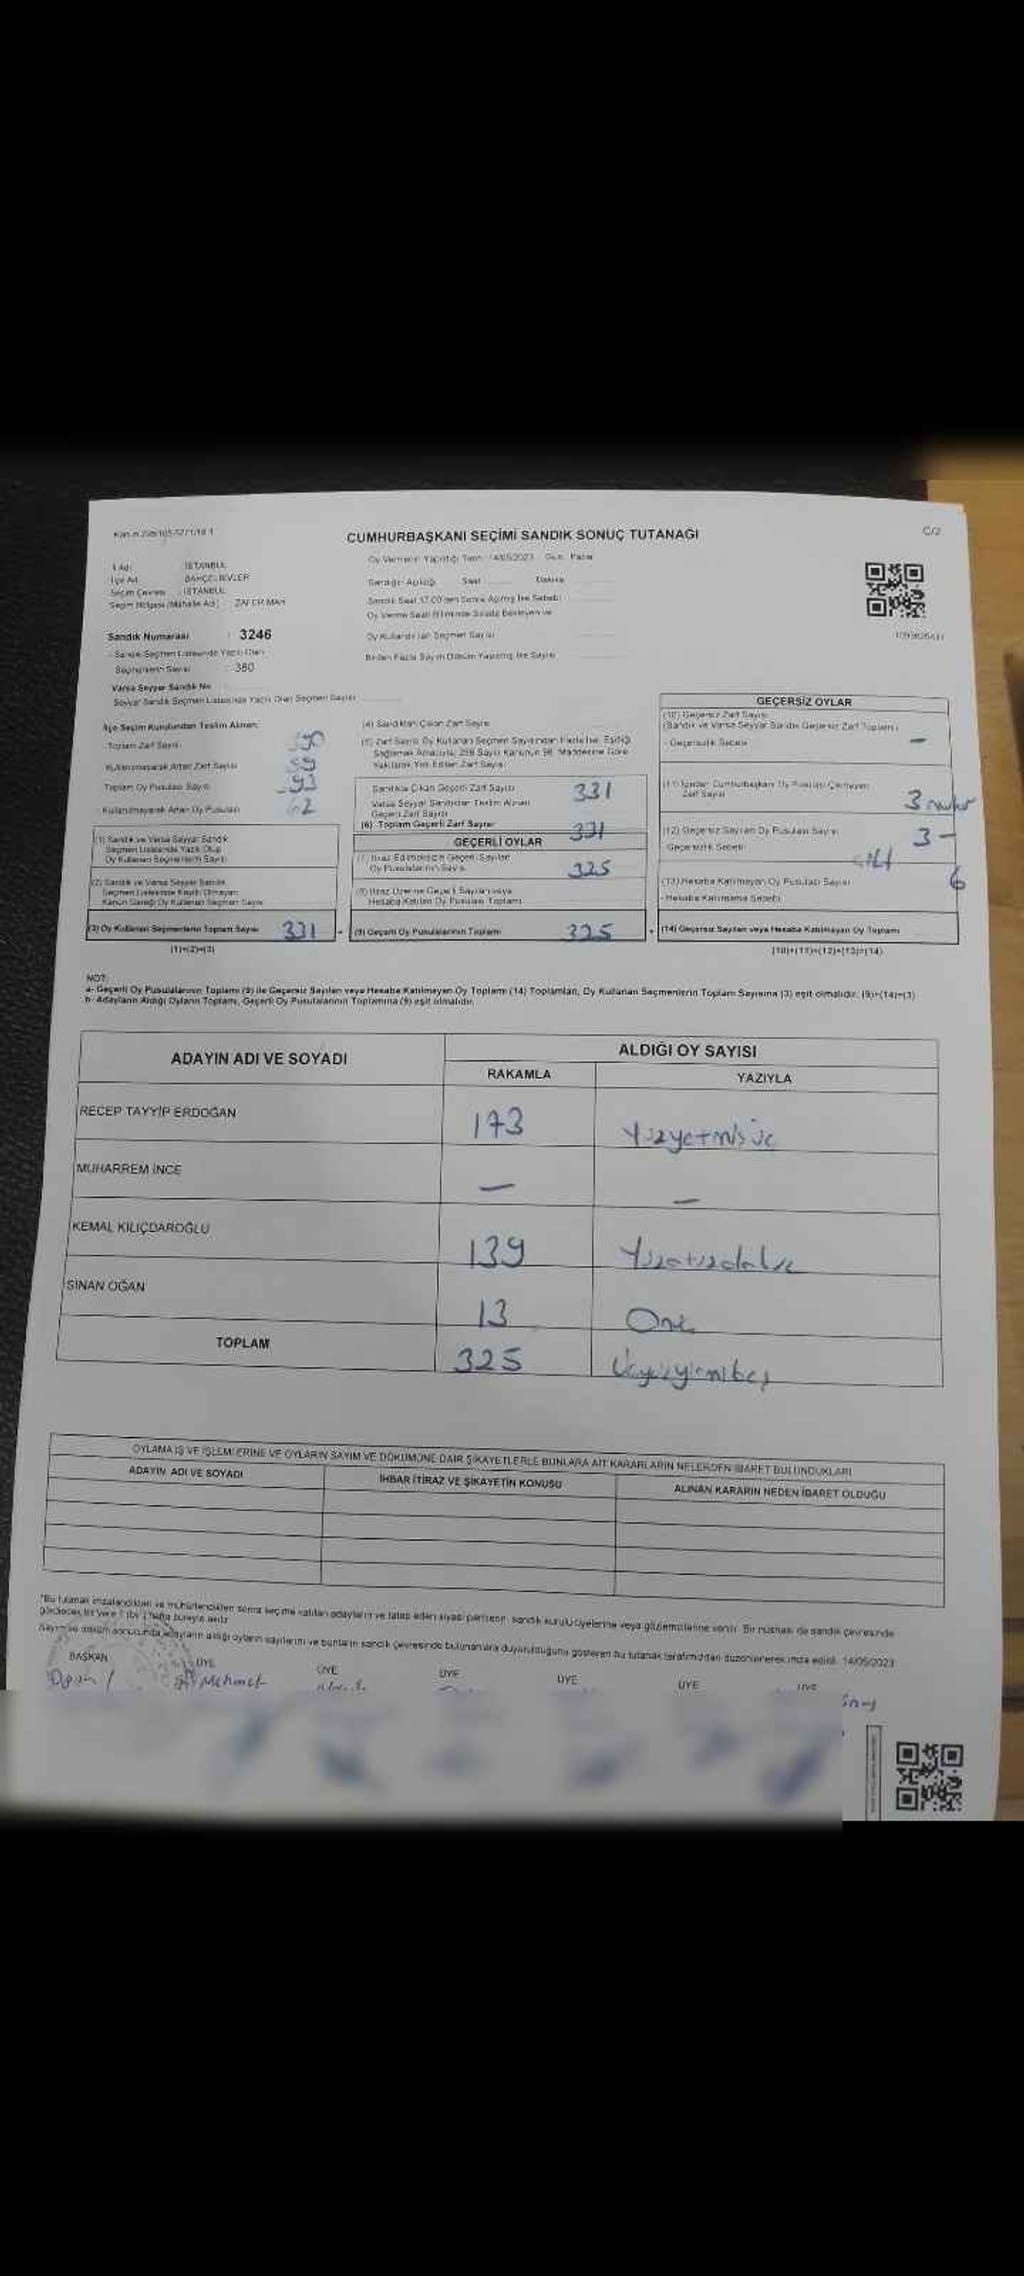 C/2
CUMHURBAŞKANI SEÇİMİ SANDIK SONUÇ TUTANAĞI
Oy Vermenin Yapıldığı Tarih: 14/05/2023 Gün: Pazar
İl Adı : İSTANBUL
İlçe Adı : BAHÇELİEVLER
Seçim Çevresi : İSTANBUL
Seçim Bölgesi (Mahalle Adı) : ZAFER MAH
Sandığın Açıldığı Saat Dakika
Sandık Saat 17.00'den Sonra Açılmış İse Sebebi
Oy Verme Saati Bitiminde Sırada Bekleyen ve
Oy Kullandırılan Seçmen Sayısı
Birden Fazla Sayım Döküm Yapılmış İse Sayısı
Sandık Numarası : 3246
- Sandık Seçmen Listesinde Yazılı Olan
Seçmenlerin Sayısı : 380
Varsa Seyyar Sandık No
Seyyar Sandık Seçmen Listesinde Yazılı Olan Seçmen Sayısı
İlçe Seçim Kurulundan Teslim Alınan:
- Toplam Zarf Sayısı
- Kullanılmayarak Artan Zarf Sayısı 59
Toplam Oy Pusulası Sayısı
- Kullanılmayarak Artan Oy Pusulası 62
(1) Sandık ve Varsa Seyyar Sandık
Seçmen Listesinde Yazılı Olup
Oy Kullanan Seçmenlerin Sayısı
(2) Sandık ve Varsa Seyyar Sandık
Seçmen Listesinde Kayıtlı Olmayan
Kanun Gereği Oy Kullanan Seçmen Sayısı
(3) Oy Kullanan Seçmenlerin Toplam Sayısı 331
(1)+(2)=(3)
(4) Sandıktan Çıkan Zarf Sayısı
(5) Zarf Sayısı Oy Kullanan Seçmen Sayısından Fazla İse, Eşitliği
Sağlamak Amacıyla, 298 Sayılı Kanunun 98. Maddesine Göre
Yakılarak Yok Edilen Zarf Sayısı
Sandıkta Çıkan Geçerli Zarf Sayısı 331
Varsa Seyyar Sandıktan Teslim Alınan
Geçerli Zarf Sayısı
(6) Toplam Geçerli Zarf Sayısı 331
GEÇERLİ OYLAR
(7) İtiraz Edilmeksizin Geçerli Sayılan
Oy Pusulalarının Sayısı 325
(8) İtiraz Üzerine Geçerli Sayılan veya
Hesaba Katılan Oy Pusulası Toplamı
(9) Geçerli Oy Pusulalarının Toplamı 325
GEÇERSİZ OYLAR
(10) Geçersiz Zarf Sayısı
(Sandık ve Varsa Seyyar Sandık Geçersiz Zarf Toplamı)
- Geçersizlik Sebebi -
(11) İçinden Cumhurbaşkanı Oy Pusulası Çıkmayan
Zarf Sayısı 3
(12) Geçersiz Sayılan Oy Pusulası Sayısı 3 -
Geçersizlik Sebebi
(13) Hesaba Katılmayan Oy Pusulası Sayısı 6
- Hesaba Katılmama Sebebi
(14) Geçersiz Sayılan veya Hesaba Katılmayan Oy Toplamı
(10)+(11)+(12)+(13)=(14)
NOT:
a- Geçerli Oy Pusulalarının Toplamı (9) ile Geçersiz Sayılan veya Hesaba Katılmayan Oy Toplamı (14) Toplamları, Oy Kullanan Seçmenlerin Toplam Sayısına (3) eşit olmalıdır. (9)+(14)=(3)
b- Adayların Aldığı Oyların Toplamı, Geçerli Oy Pusulalarının Toplamına (9) eşit olmalıdır.
ADAYIN ADI VE SOYADI ALDIĞI OY SAYISI
RAKAMLA YAZIYLA
RECEP TAYYİP ERDOĞAN 173 Yüzyetmişüç
MUHARREM İNCE - -
KEMAL KILIÇDAROĞLU 139 Yüzotuzdokuz
SİNAN OĞAN 13 Onüç
TOPLAM 325 Üçyüzyirmibeş
OYLAMA İŞ VE İŞLEMLERİNE VE OYLARIN SAYIM VE DÖKÜMÜNE DAİR ŞİKAYETLERLE BUNLARA AİT KARARLARIN NELERDEN İBARET BULUNDUKLARI
ADAYIN ADI VE SOYADI İHBAR İTİRAZ VE ŞİKAYETİN KONUSU ALINAN KARARIN NEDEN İBARET OLDUĞU
*Bu tutanak imzalandıktan ve mühürlendikten sonra seçime katılan adayların ve talep eden siyasi partilerin, sandık kurulu üyelerine veya gözlemcilerine verilir. Bir nüshası de sandık çevresinde
görülecek bir yere 1 (bir) hafta süreyle asılır.
Sayım ve döküm sonucunda, adayların aldığı oyların sayılarını ve bunların sandık çevresinde bulunanlara duyurulduğunu gösteren bu tutanak tarafımızdan düzenlenerek imza edildi. 14/05/2023
BAŞKAN ÜYE ÜYE ÜYE ÜYE ÜYE ÜYE
Mehmet